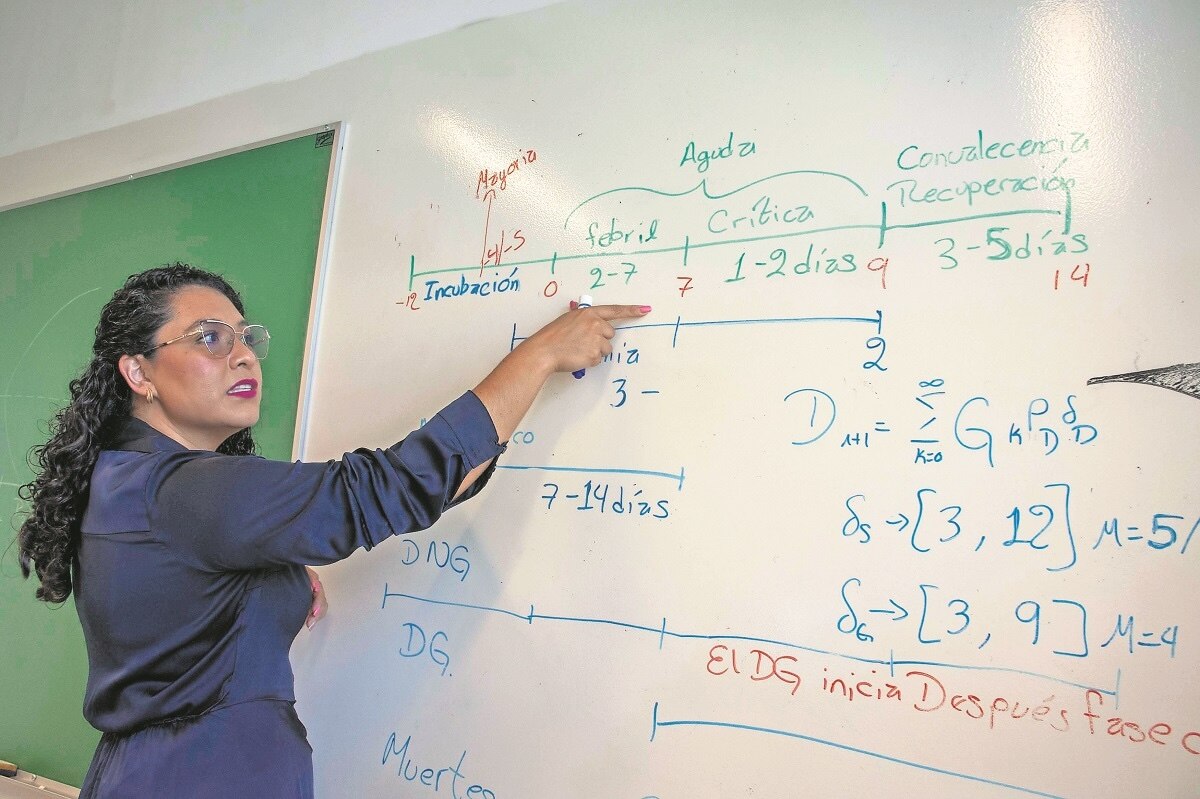 Mayoria
Aguda
Convalecencia
Recuperación
-4/-5
febril
Crítica
-12
Incubación
0
2-7
7
1-2 días
9
3-5 días
14
3 -
2
D n+1 = ∞ Σ k=0 G k ρ D δ D
7-14 días
δs → [3, 12] M=5/
DNG
δG → [3, 9] M=4
DG.
El DG inicia Después fase
Muertes